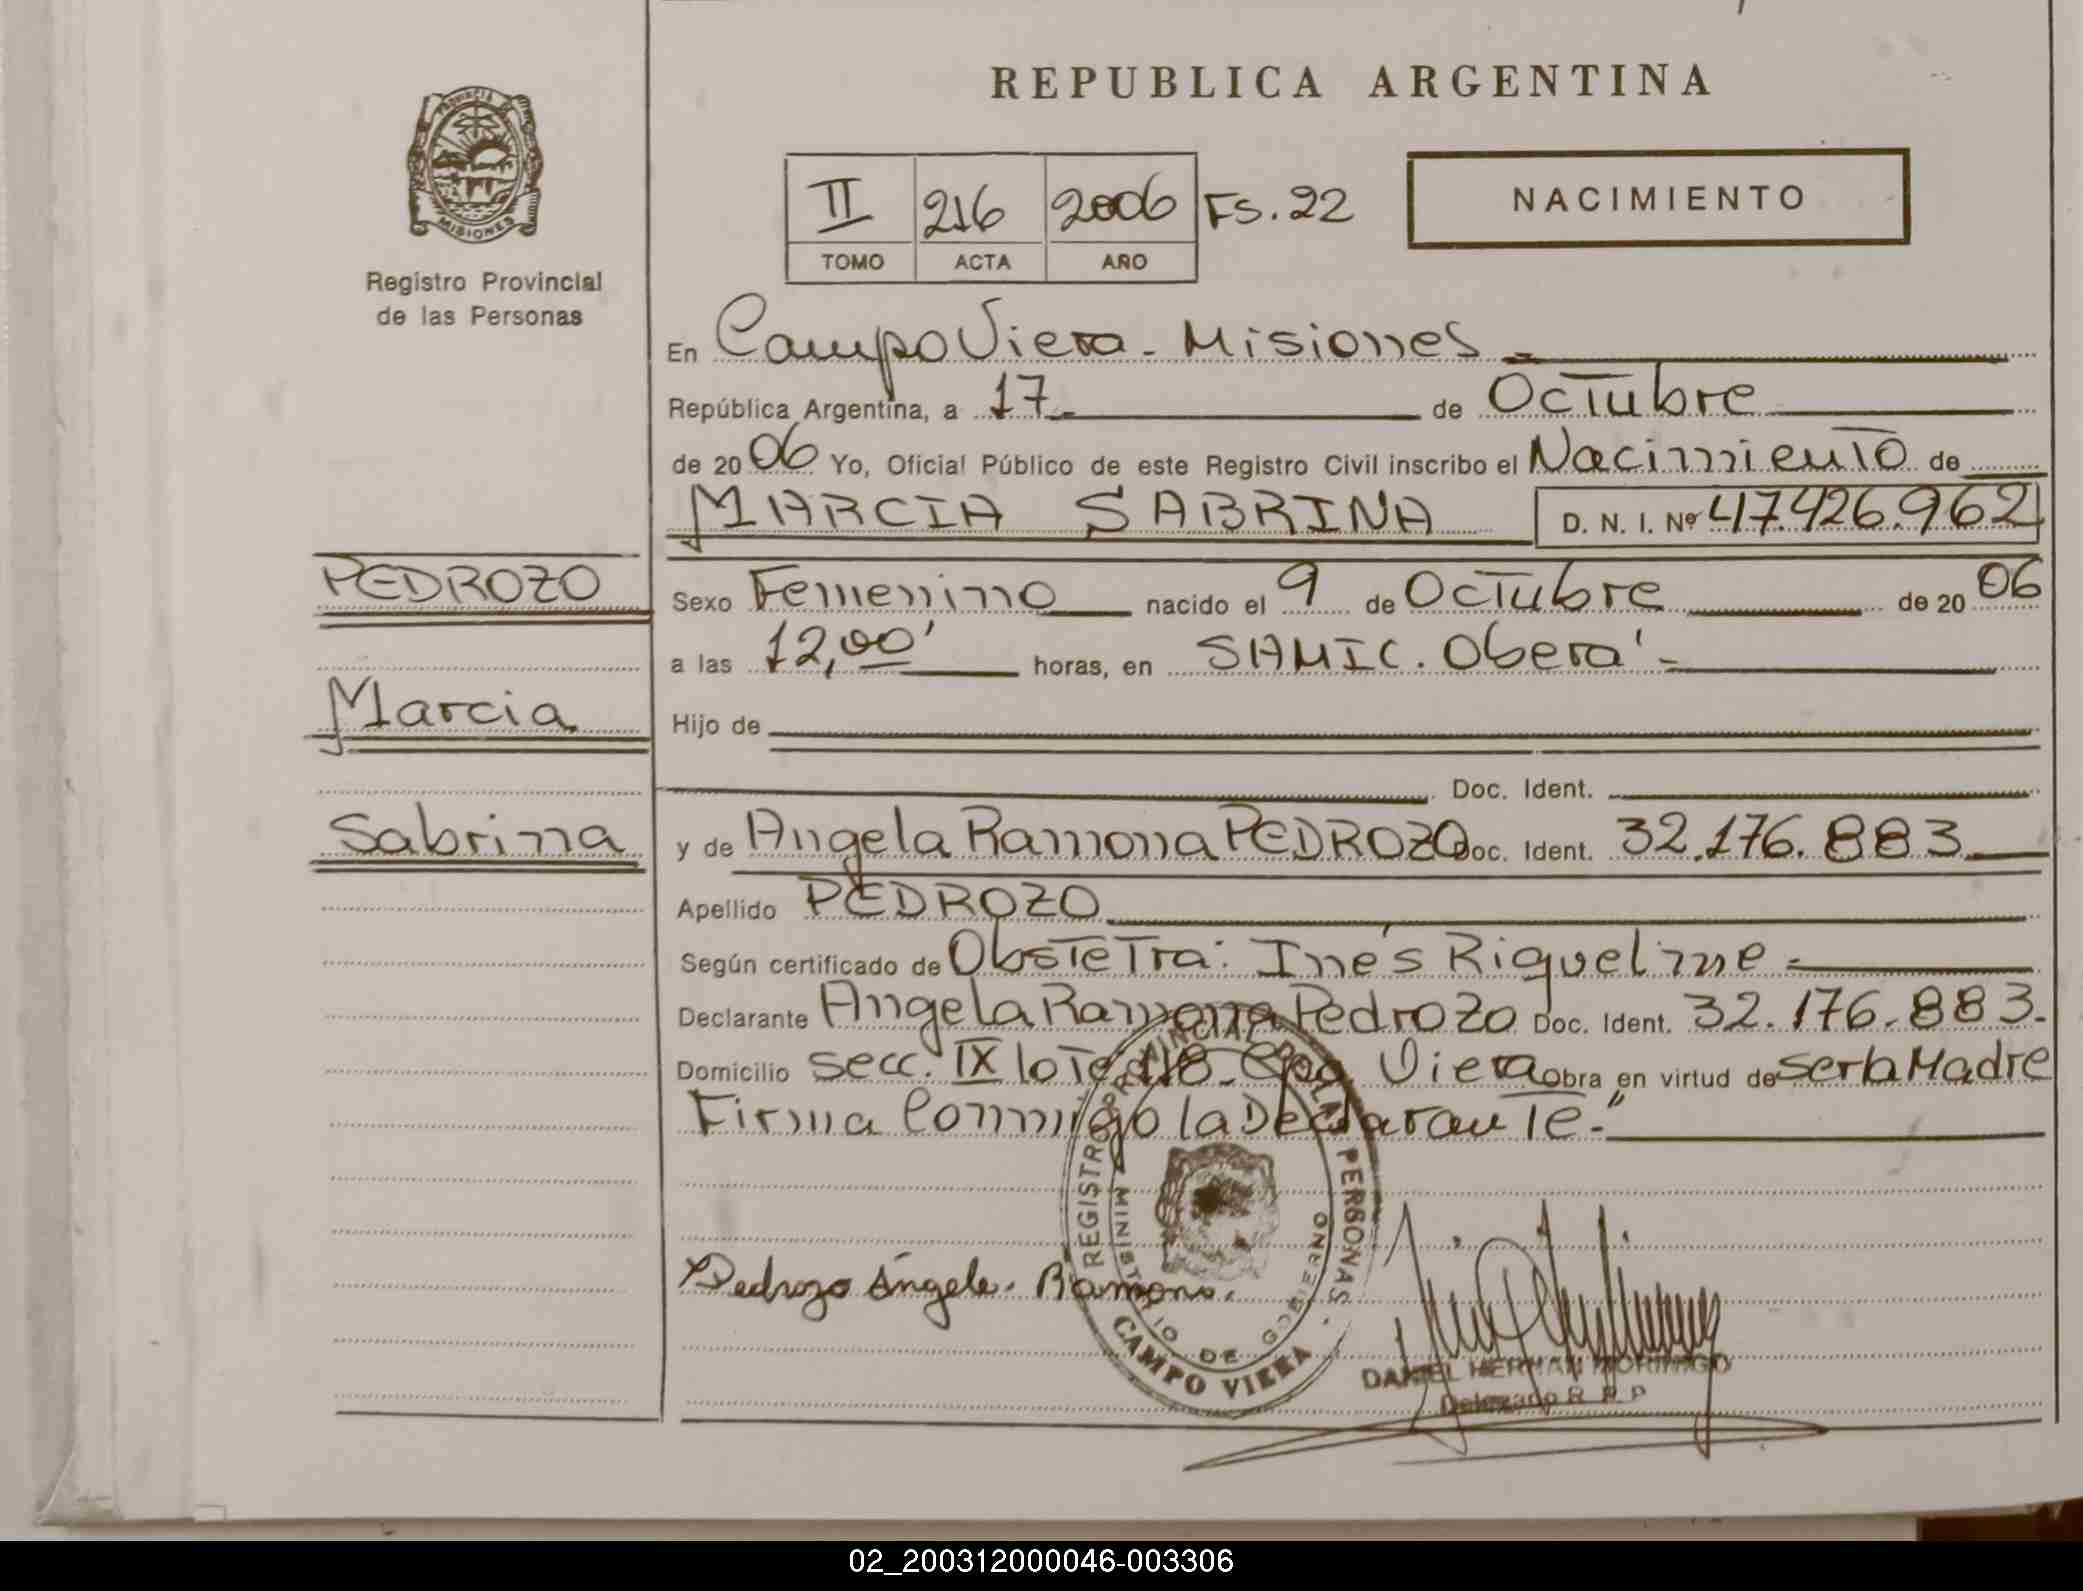 REPUBLICA ARGENTINA
PROVINCIA DE
MISIONES
Registro Provincial
de las Personas
II 216 2006 Fs. 22
TOMO ACTA AÑO
NACIMIENTO
En Campo Viera - Misiones
República Argentina, a 17 de Octubre
de 2006 Yo, Oficial Público de este Registro Civil inscribo el Nacimiento de
MARCIA SABRINA D. N. I. Nº 47.426.962
PEDROZO
Sexo Femenino nacido el 9 de Octubre de 2006
a las 12,00' horas, en SAMIC. Oberá -
Marcia
Hijo de
Doc. Ident.
Sabrina
y de Angela Ramona PEDROZO Doc. Ident. 32.176.883
Apellido PEDROZO
Según certificado de Obstetra: Inés Riquelme -
Declarante Angela Ramona Pedrozo Doc. Ident. 32.176.883.
Domicilio Secc. IX lote 118 - Cpo Viera Obra en virtud de ser la Madre
Firma Conmigo la Declarante."
REGISTRO PROVINCIAL DE LAS PERSONAS
MINISTERIO DE GOBIERNO
CAMPO VIERA
Pedrozo Ángela Ramona.
DANIEL HERNAN MORINIGO
Delegado R. P. P
02_200312000046-003306